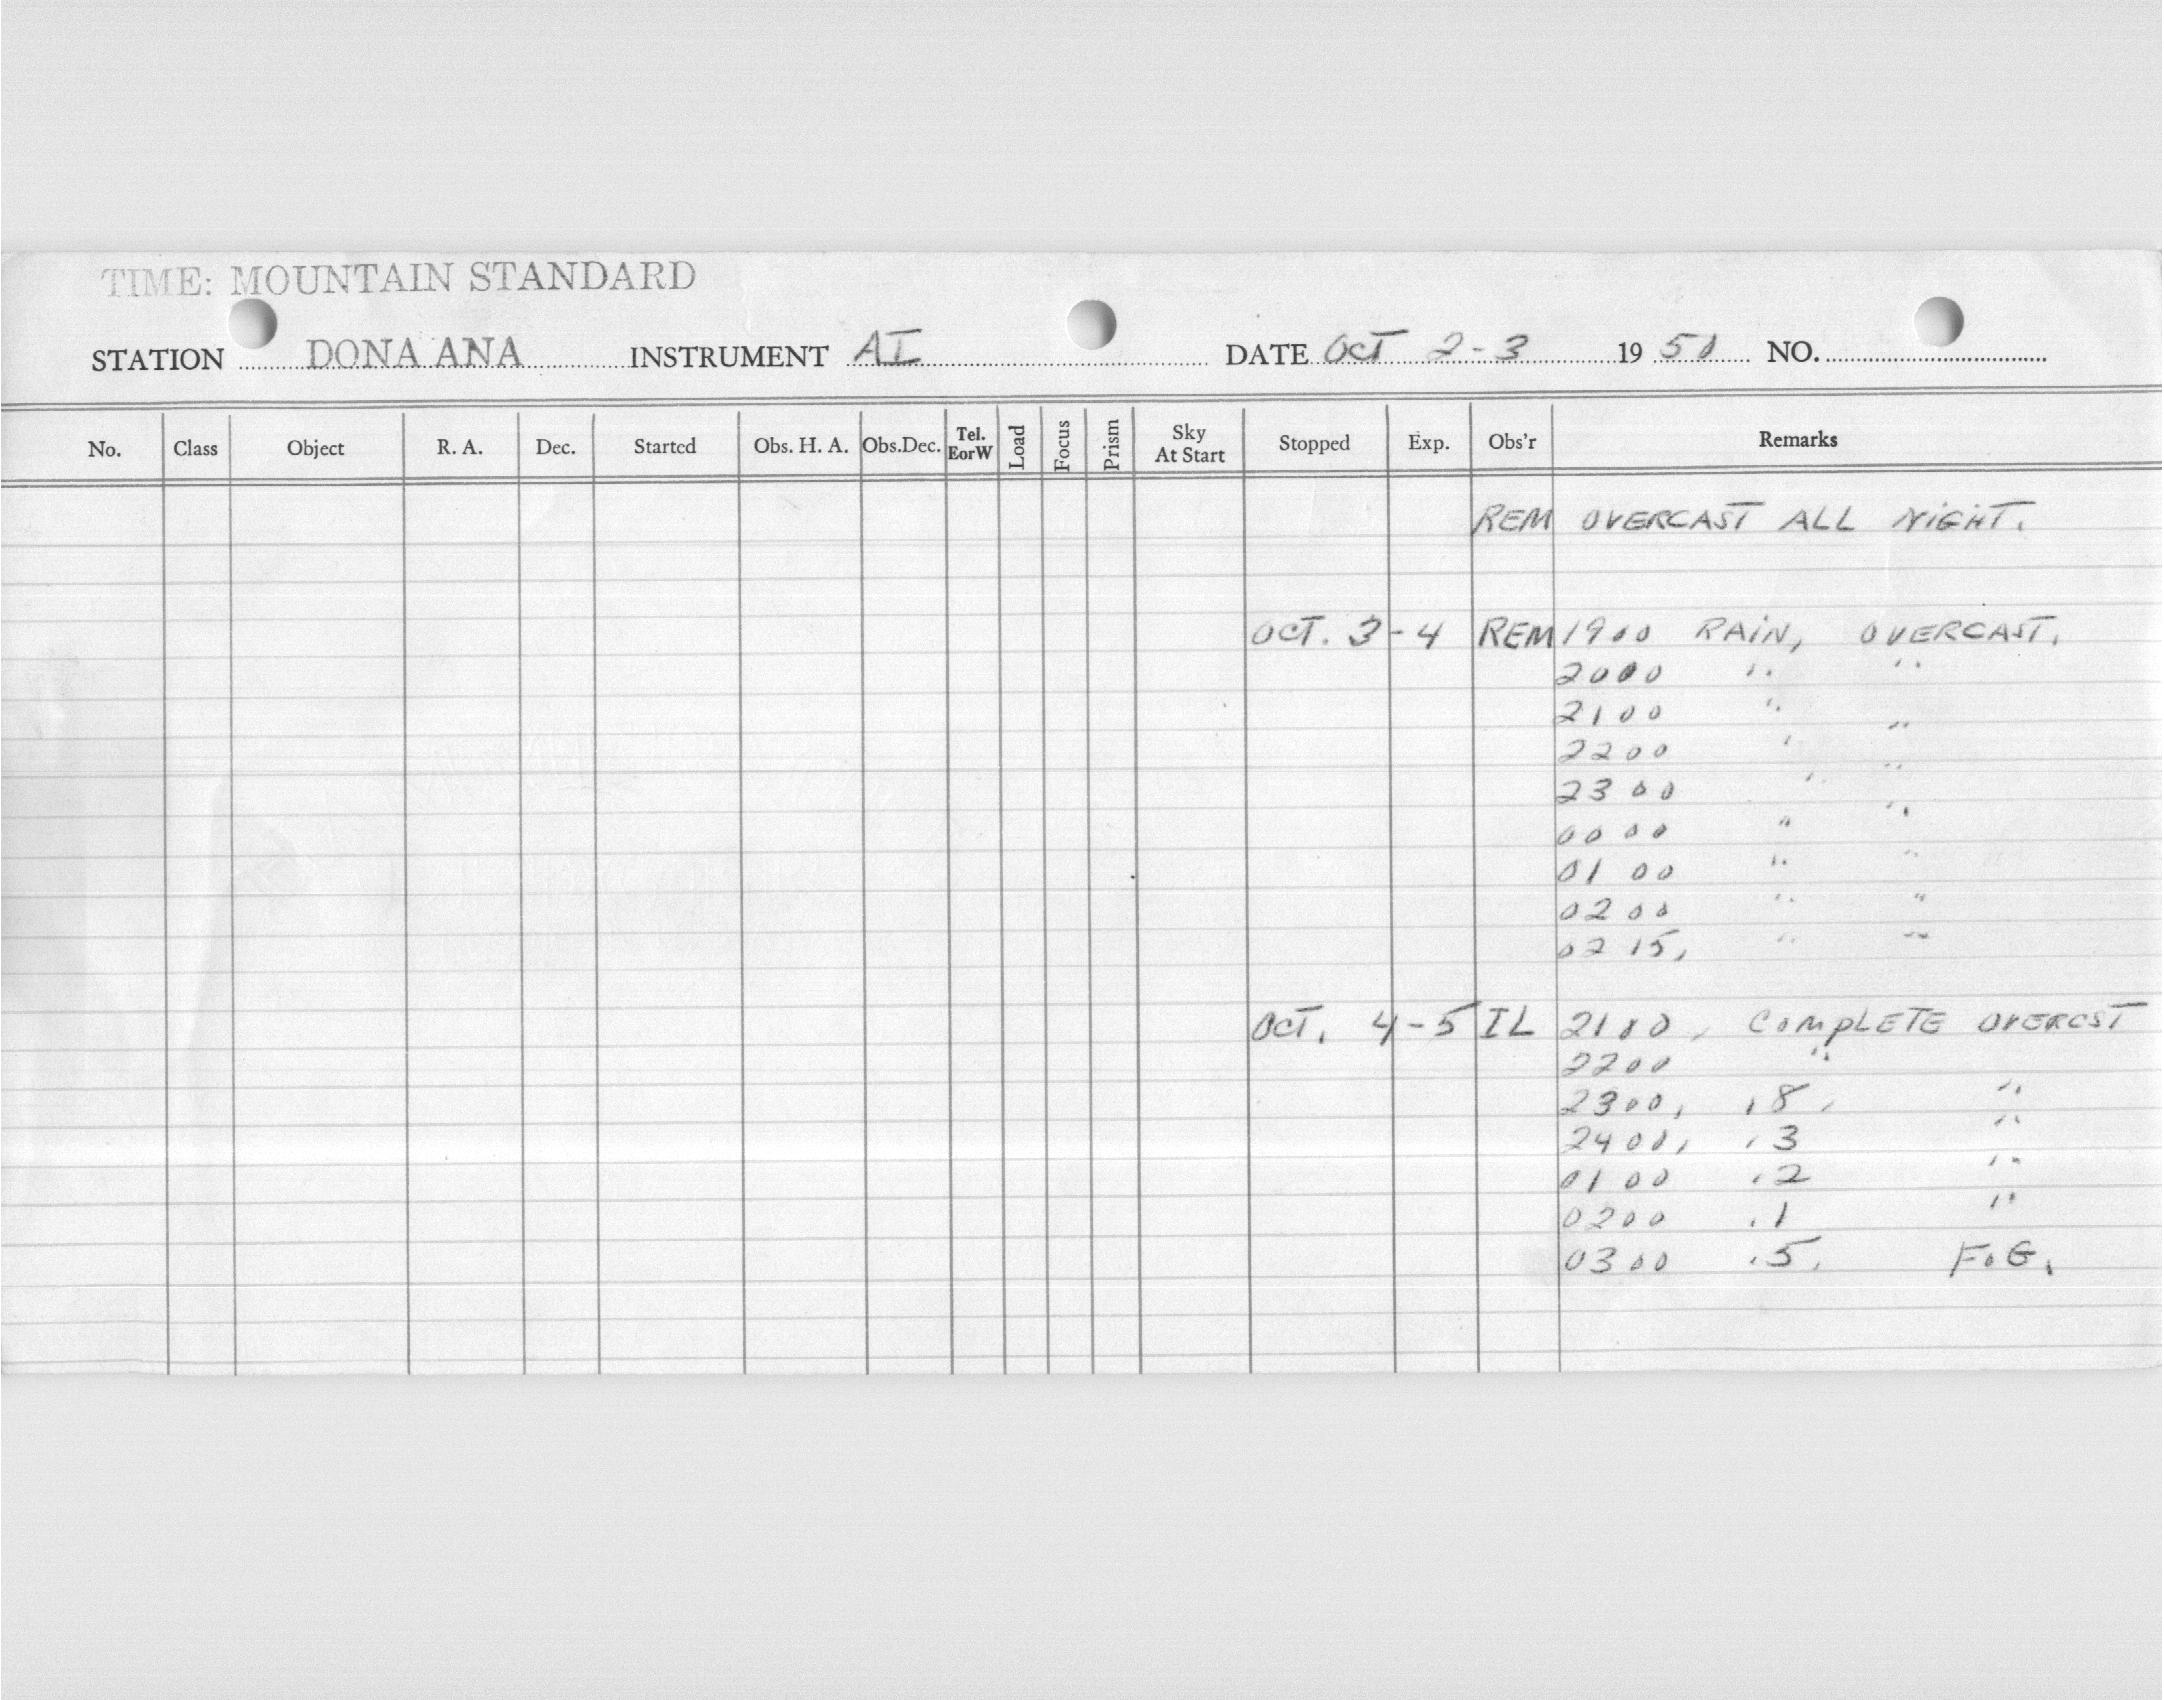 TIME: MOUNTAIN STANDARD
STATION DONA ANA INSTRUMENT AI DATE OCT 2-3 19 50 NO.
No. Class Object R. A. Dec. Started Obs. H. A. Obs.Dec. Tel. EorW Load Focus Prism Sky At Start Stopped Exp. Obs'r Remarks
REM OVERCAST ALL NIGHT.
OCT. 3-4 REM 1900 RAIN, OVERCAST.
2000 " "
2100 " "
2200 " "
2300 " "
0000 " "
01 00 " "
0200 " "
02 15, " "
OCT. 4-5 IL 2100, COMPLETE OVERCST
2200 "
2300, .8, "
2400, .3 "
0100 .2 "
0200 .1 "
0300 .5, FOG.